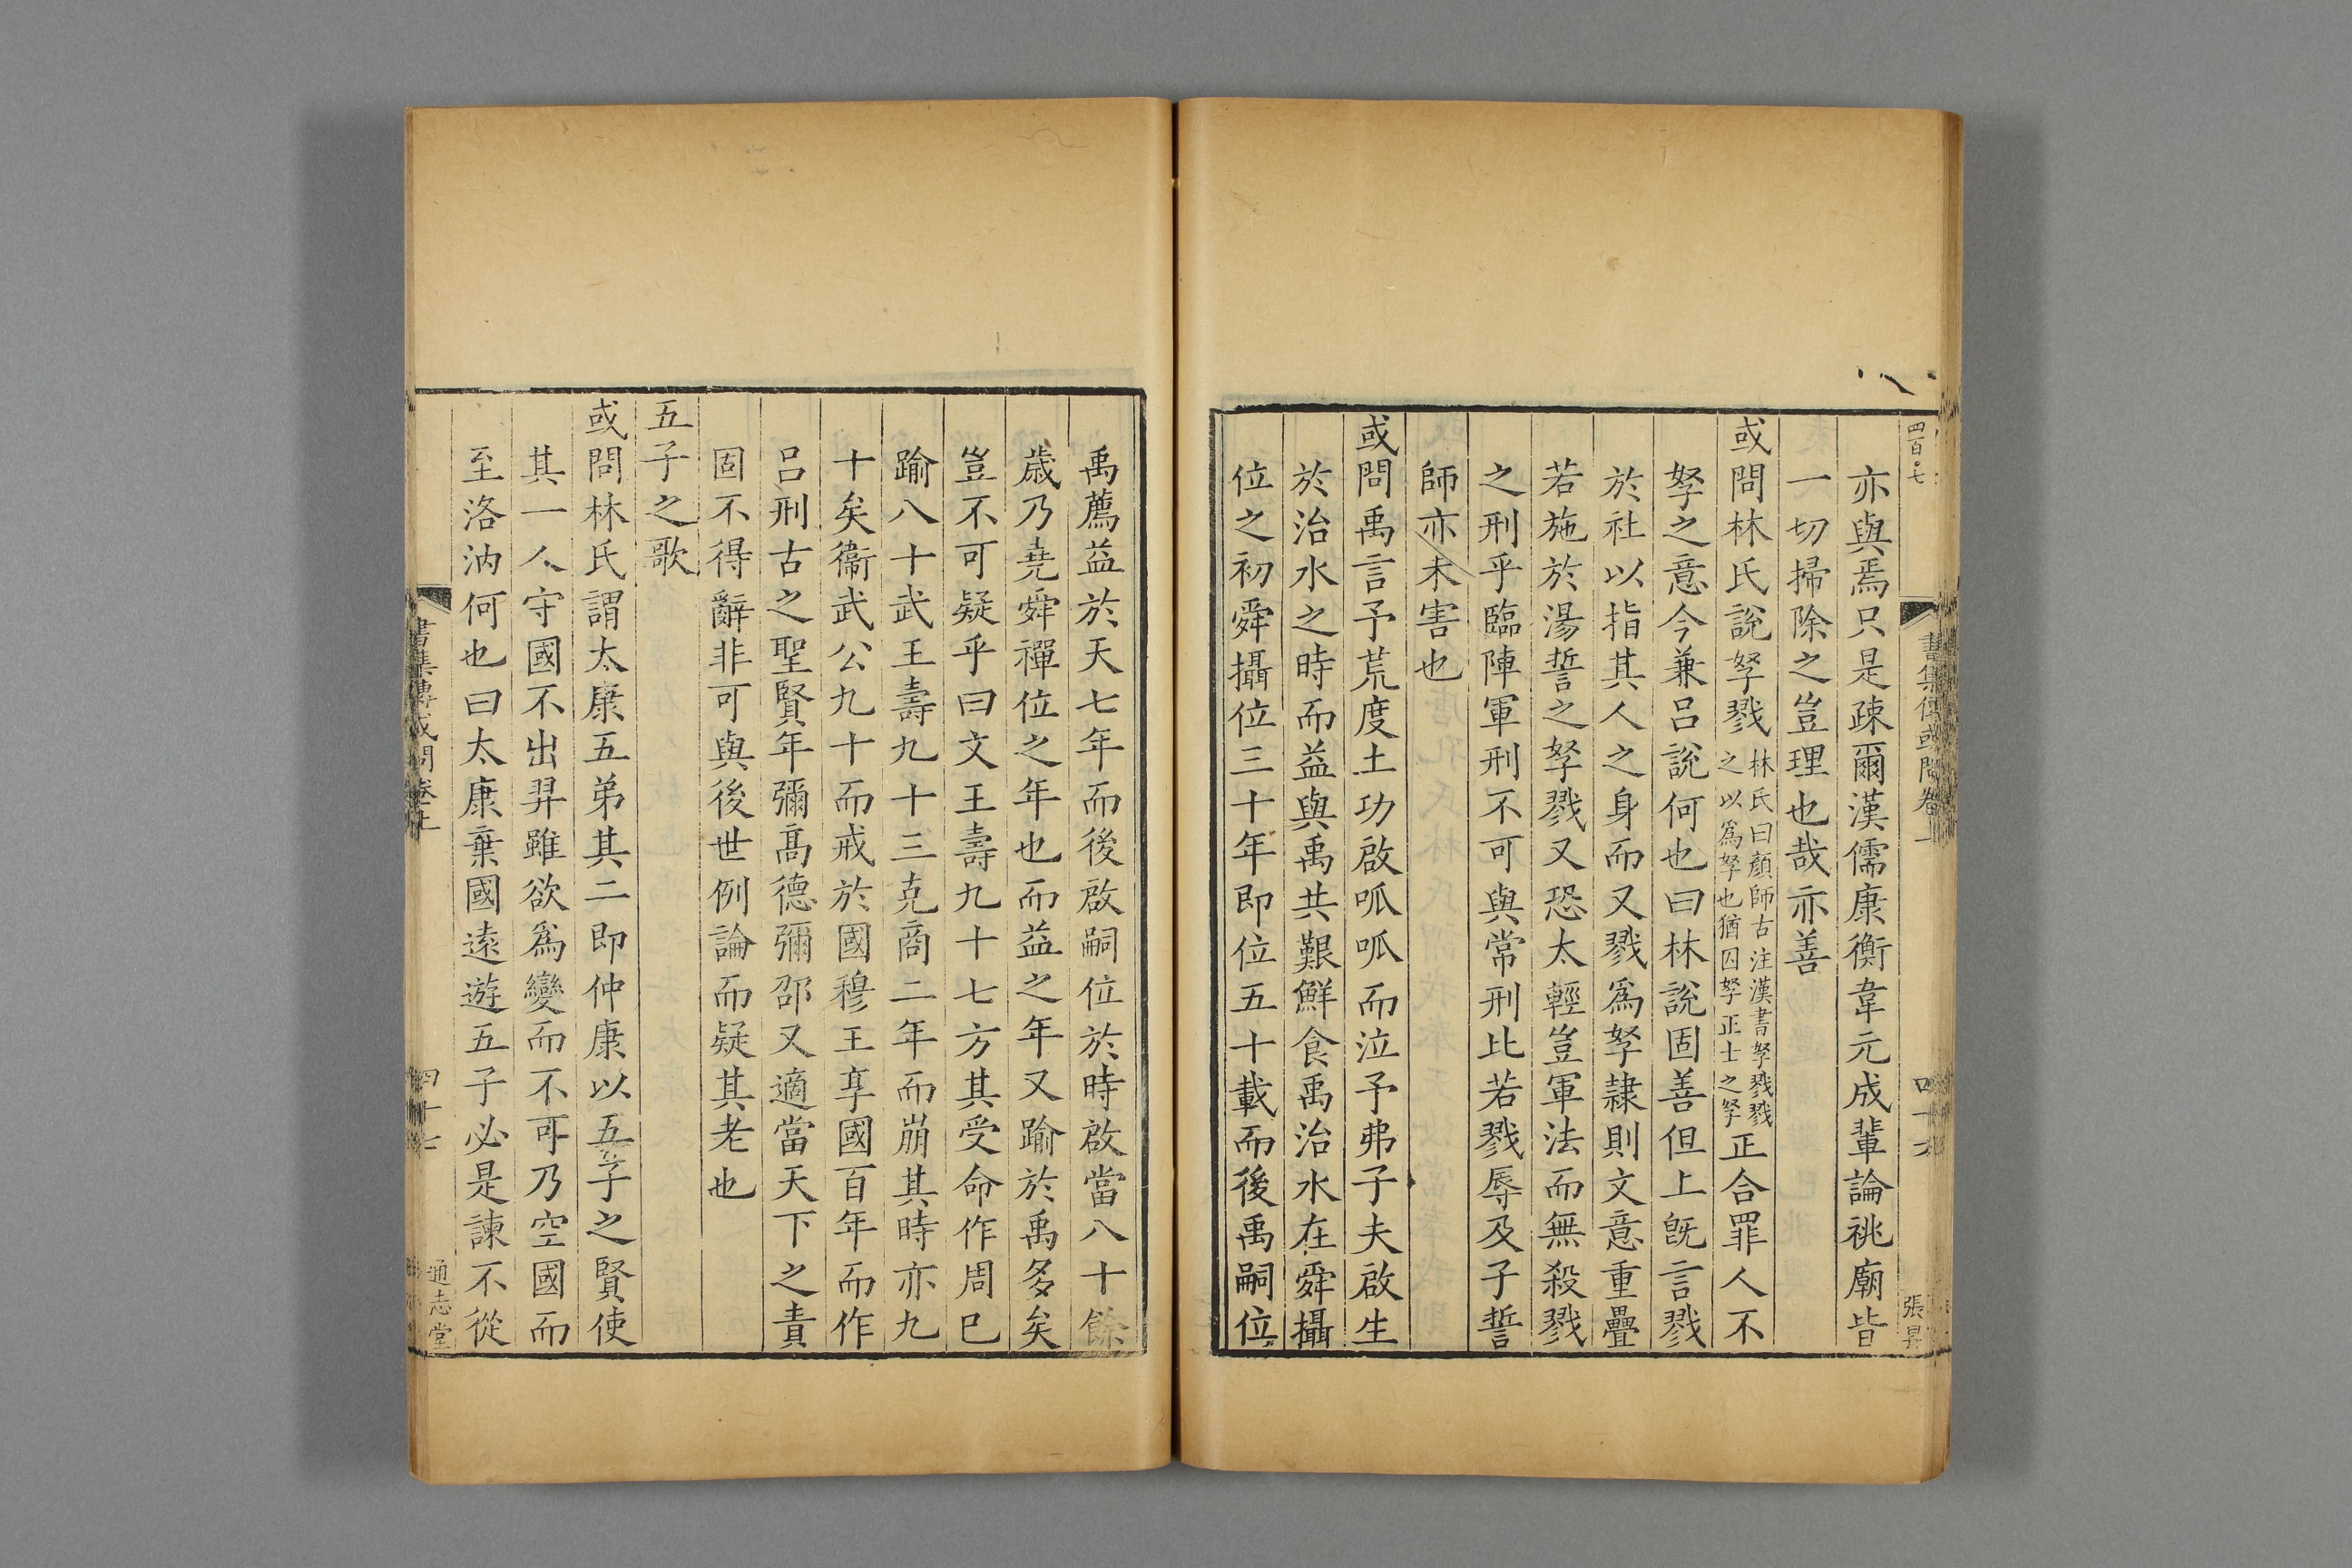 四百七
書集傳或問卷上
四十六
張昇
亦與焉只是疎爾漢儒康衡韋元成輩論祧廟皆
一切掃除之豈理也哉亦善
或問林氏說孥戮林氏曰顏師古注漢書孥戮戮之以爲孥也猶囚孥正士之孥正合罪人不
孥之意今兼呂說何也曰林說固善但上旣言戮
於社以指其人之身而又戮爲孥隷則文意重疊
若施於湯誓之孥戮又恐太輕豈軍法而無殺戮
之刑乎臨陣軍刑不可與常刑比若戮辱及子誓
師亦未害也
或問禹言予荒度土功啟呱呱而泣予弗子夫啟生
於治水之時而益與禹共艱鮮食禹治水在舜攝
位之初舜攝位三十年即位五十載而後禹嗣位
禹薦益於天七年而後啟嗣位於時啟當八十餘
歲乃堯舜禪位之年也而益之年又踰於禹多矣
豈不可疑乎曰文王壽九十七方其受命作周已
踰八十武王壽九十三克商二年而崩其時亦九
十矣衞武公九十而戒於國穆王享國百年而作
呂刑古之聖賢年彌高德彌邵又適當天下之責
固不得辭非可與後世例論而疑其老也
五子之歌
或問林氏謂太康五弟其二即仲康以五子之賢使
其一人守國不出羿雖欲爲變而不可乃空國而
至洛汭何也曰太康棄國遠遊五子必是諫不從
書集傳或問卷上
四十七
通志堂